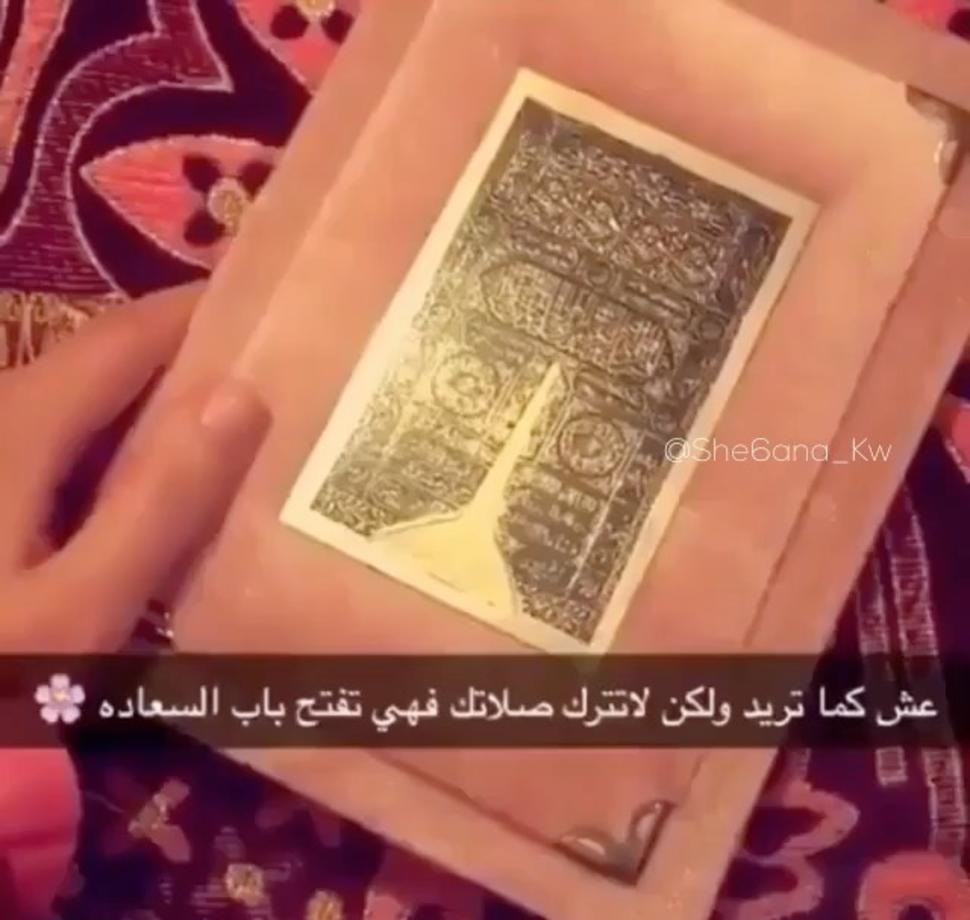 @She6ana_Kw
عش كما تريد ولكن لاتترك صلاتك فهي تفتح باب السعاده 🌸